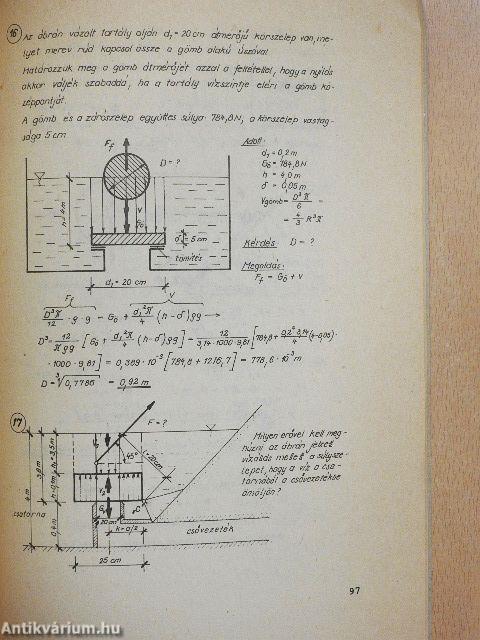 16 Az ábrán vázolt tartály alján d₁ = 20 cm átmérőjű körszelep van, me-
lyet merev rúd kapcsol össze a gömb alakú úszóval.
Határozzuk meg a gömb átmérőjét azzal a feltétellel, hogy a nyílás
akkor váljék szabaddá, ha a tartály vízszintje eléri a gömb kö-
zéppontját.
A gömb és a zárószelep együttes súlya: 784,8 N, a körszelep vastag-
sága 5 cm.
Ff
D = ?
h = 4m
V
Gö
δ = 5 cm
tömítés
d₁ = 20 cm
Adott:
d₁ = 0,2 m
Gö = 784,8 N
h = 4,0 m
δ = 0,05 m
Vgömb = D³π/6 =
= 4/3 R³π
Kérdés: D = ?
Megoldás:
Ff = Gö + V
Ff V
D³π/12 · ρ · g = Gö + d₁²π/4 (h-δ)ρg →
D³ = 12/πρg [Gö + d₁²π/4 (h-δ)ρg] = 12/3,14·1000·9,81 [784,8 + 0,2²·3,14/4 (4-0,05)·
·1000·9,81] = 0,389·10⁻³ [784,8 + 1216,7] = 778,6·10⁻³ m
D = ³√0,7786 = 0,92 m
17
F = ?
45°
l = 20 cm
Milyen erővel kell meg-
húzni az ábrán jelzett
vízállás mellett a súlysze-
lepet, hogy a víz a csa-
tornából a csővezetékbe
ömöljön?
4m
csatorna
G
C
20 cm
k = a/2
25 cm
csővezeték
97
Antikvárium.hu